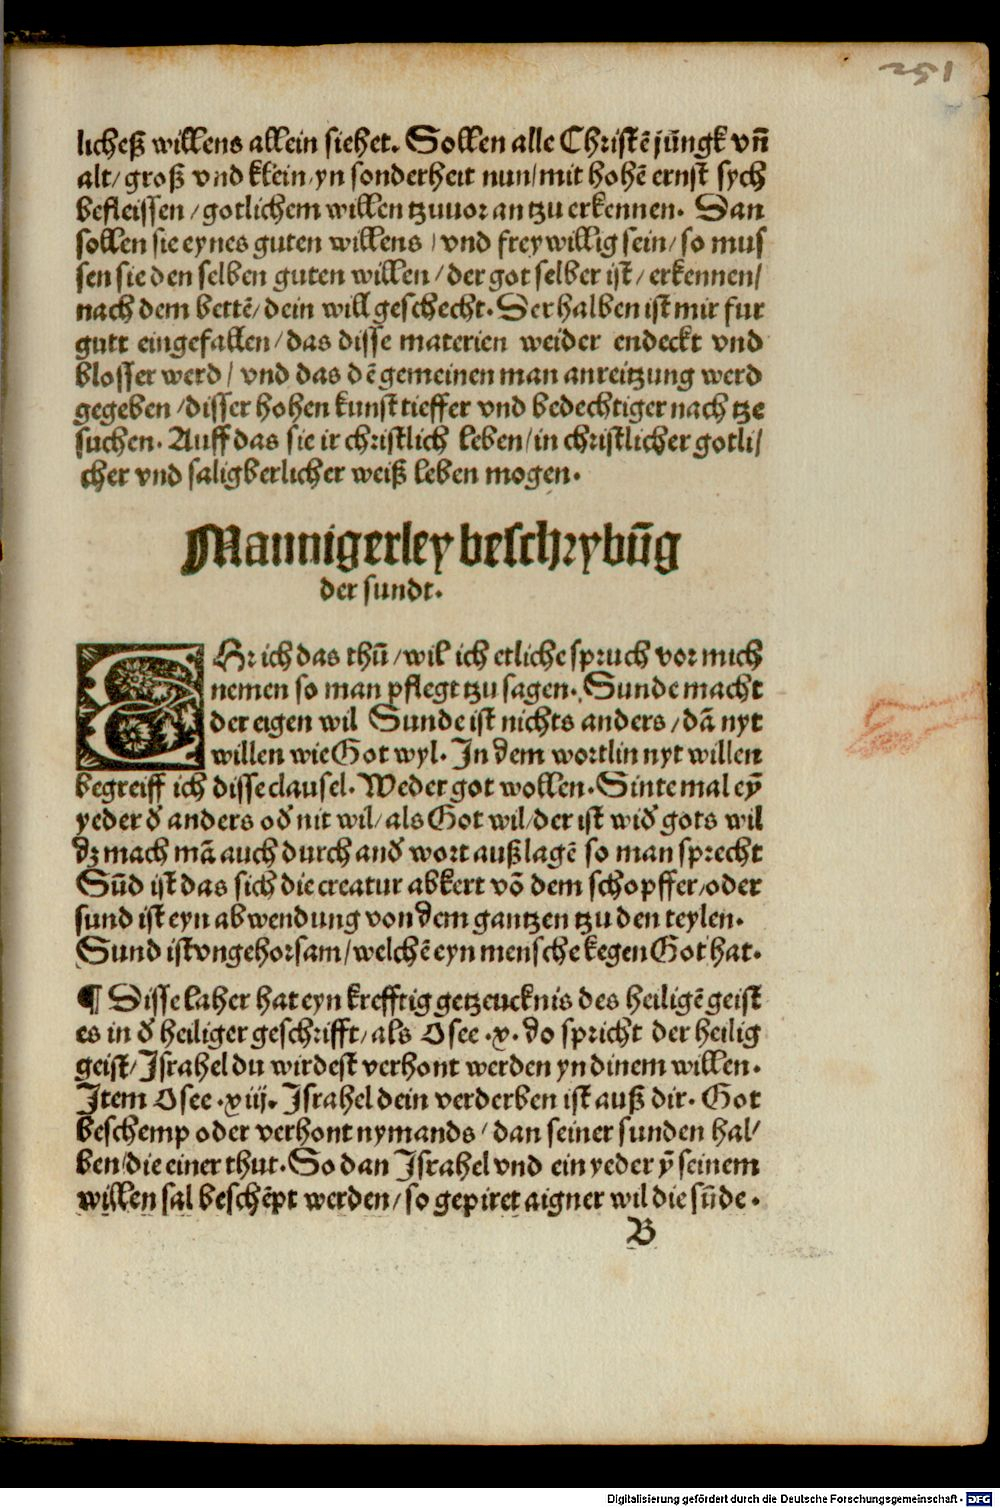 251
licheß willens allein siehet. Sollen alle Christē jūngk vñ
alt/ groß vnd klein/ yn sonderheit nun/ mit hohē ernst sych
befleissen/ gotlichem willen tzuuor an tzu erkennen. Dan
sollen sie eynes guten willens/ vnd frey willig sein/ so mus
sen sie den selben guten willen/ der got selber ist/ erkennen/
nach dem bettē/ dein will geschecht. Der halben ist mir fur
gutt eingefallen/ das disse materien weider endeckt vnd
blosser werd/ vnd das dē gemeinen man anreitzung werd
gegeben/ disser hohen kunst tieffer vnd bedechtiger nach tze
suchen. Auff das sie ir christlich leben/ in christlicher gotli/
cher vnd saligberlicher weiß leben mogen.
Mannigerley beschrybūg
der sundt.
EHr ich das thū/ wil ich etliche spruch vor mich
nemen so man pflegt tzu sagen. Sunde macht
der eigen wil Sunde ist nichts anders/ dā nyt
willen wie Got wyl. In dem wortlin nyt willen
begreiff ich disse clausel. Weder got wollen. Sintemal eyn̄
yeder d̕ anders od̕ nit wil/ als Got wil/ der ist wid̕ gots wil
dz mach mā auch durch and̕ wort außlagē so man sprecht
Sūd ist das sich die creatur abkert vō dem schopffer/ oder
sund ist eyn abwendung von dem gantzen tzu den teylen.
Sund ist vngehorsam/ welchē eyn mensche kegen Got hat.
¶ Disse laher hat eyn krefftig getzeucknis des heiligē geist
es in d̕ heiliger geschrifft/ als Osee .x. do spricht der heilig
geist/ Israhel du wirdest verhont werden yn dinem willen.
Item Osee .xiij. Israhel dein verderben ist auß dir. Got
beschemp oder verhont nymands/ dan seiner sunden hal/
ben/ die einer thut. So dan Israhel vnd ein yeder ȳ seinem
willen sal beschēpt werden/ so gepiret aigner wil die sūde.
B
Digitalisierung gefördert durch die Deutsche Forschungsgemeinschaft - DFG